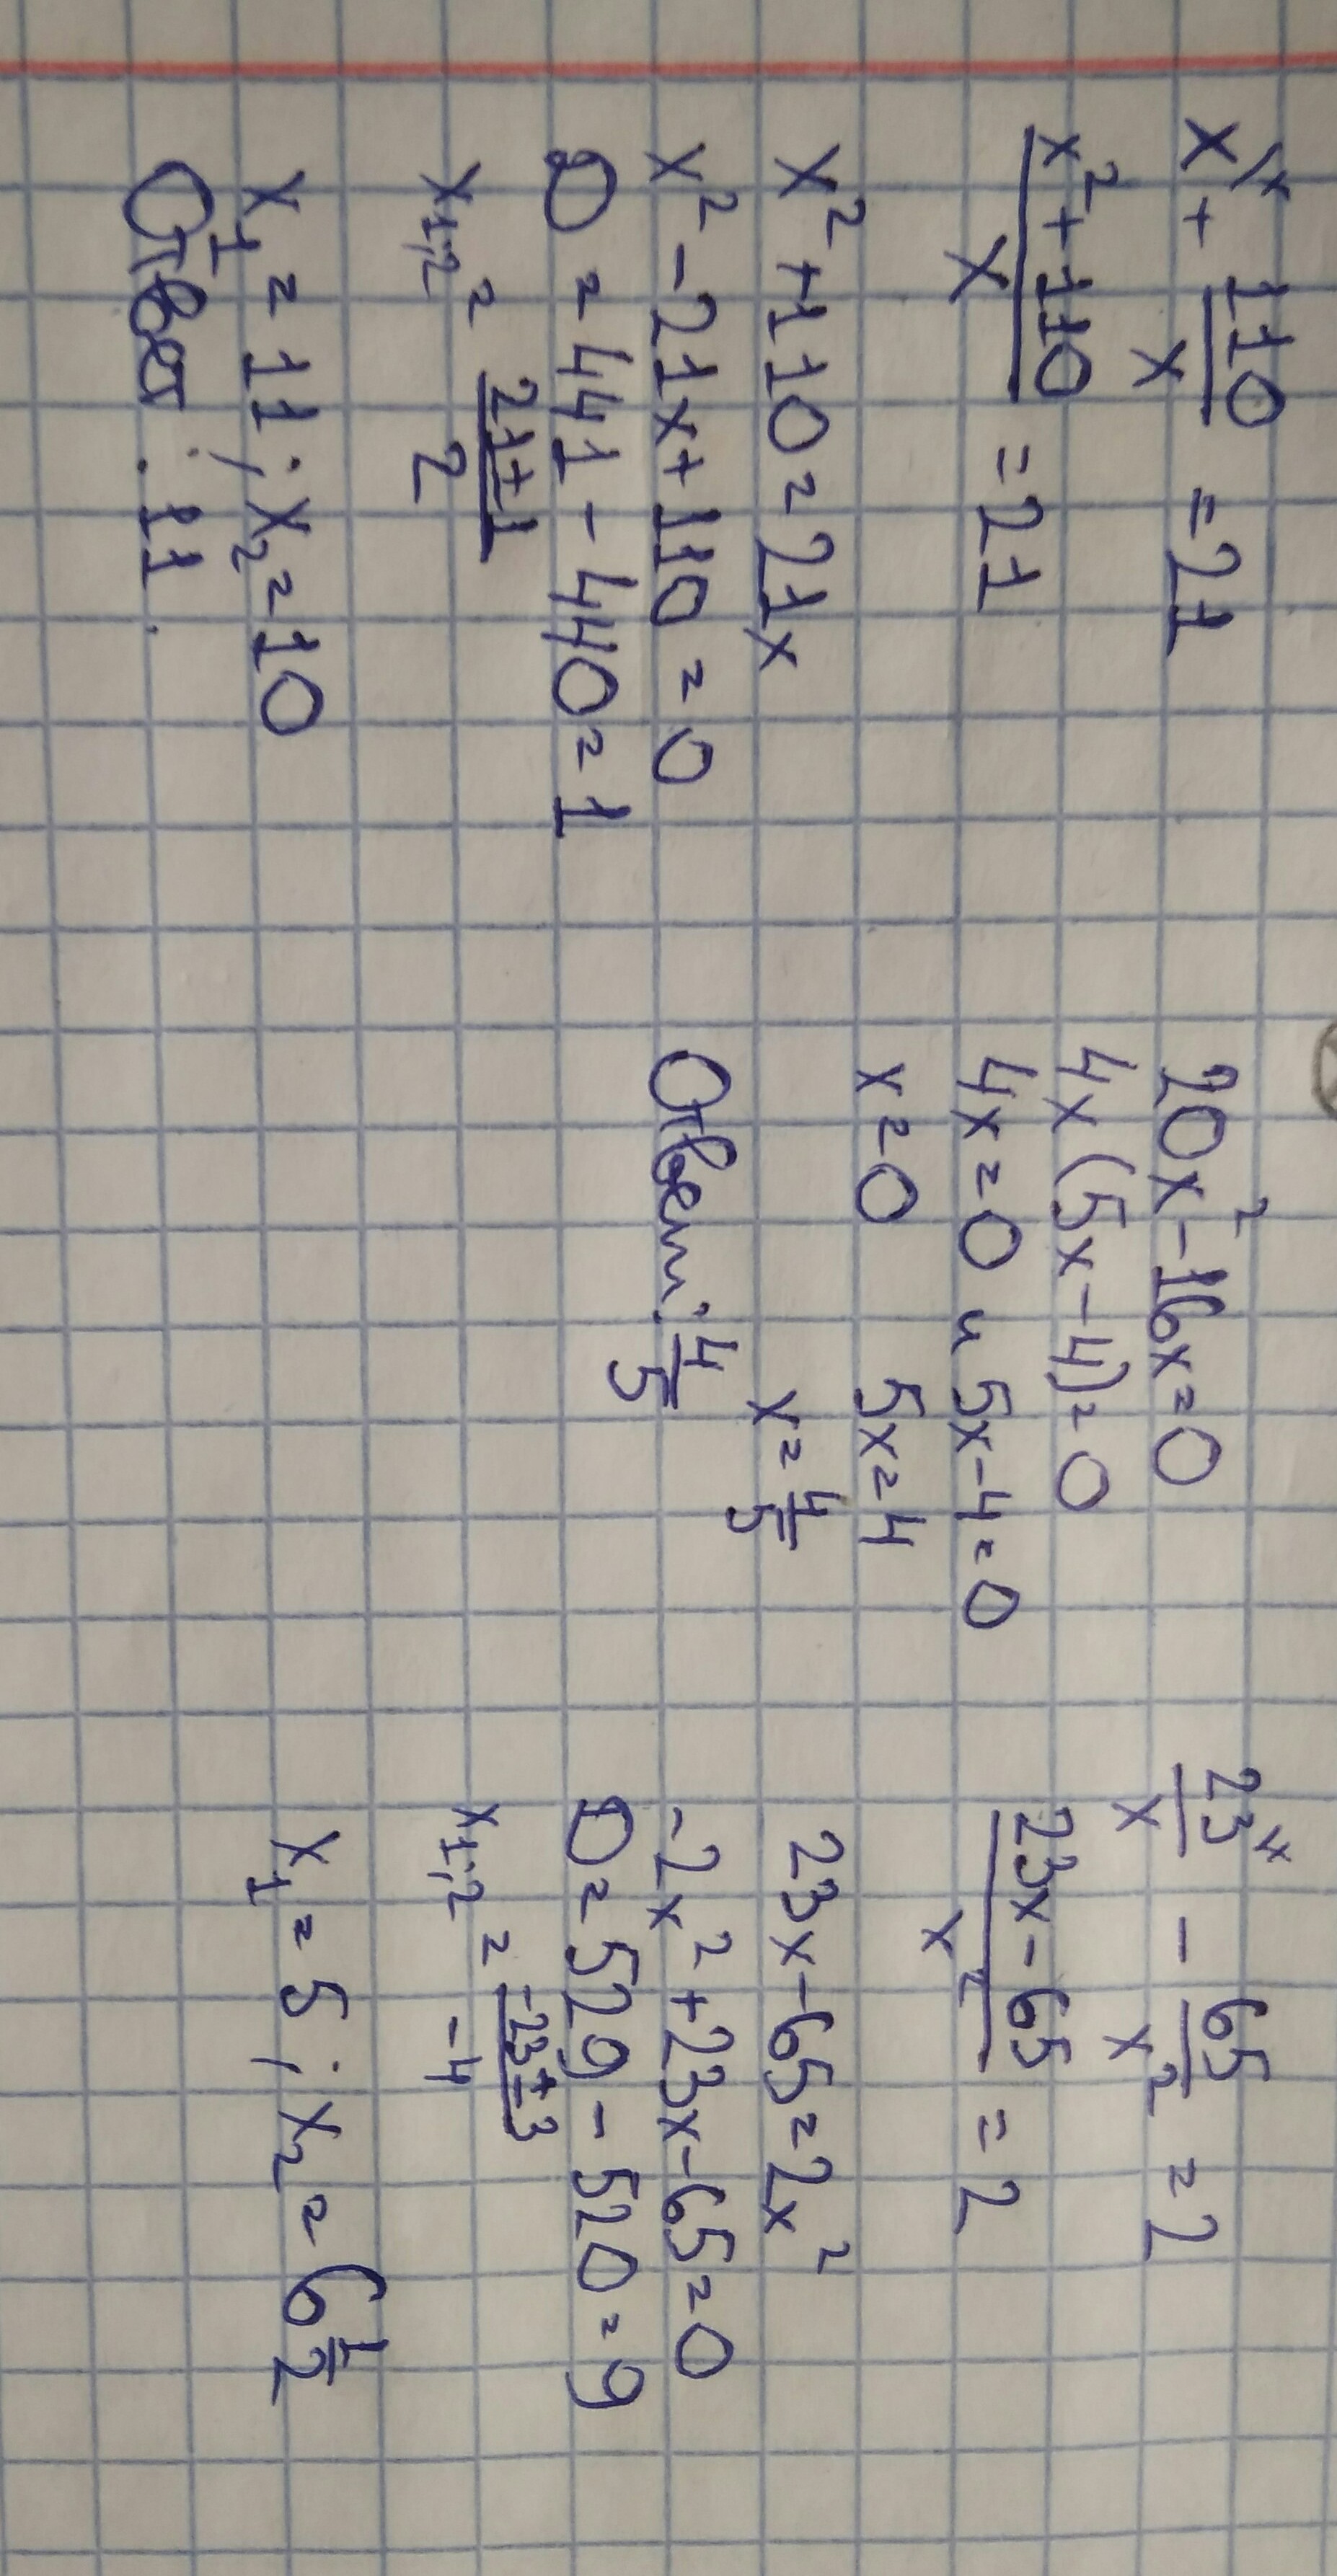 x\ˣ + 110/x = 21
x² + 110 / x = 21
x² + 110 = 21x
x² - 21x + 110 = 0
D = 441 - 440 = 1
x₁,₂ = 21±1 / 2
x₁ = 11 ; x₂ = 10
Ответ : 11.
20x² - 16x = 0
4x (5x - 4) = 0
4x = 0 и 5x - 4 = 0
x = 0 5x = 4
x = 4/5
Ответ : 4/5
23ˣ/x - 65/x² = 2
23x - 65 / x² = 2
23x - 65 = 2x²
-2x² + 23x - 65 = 0
D = 529 - 520 = 9
x₁,₂ = -23±3 / -4
x₁ = 5 ; x₂ = 6 1/2